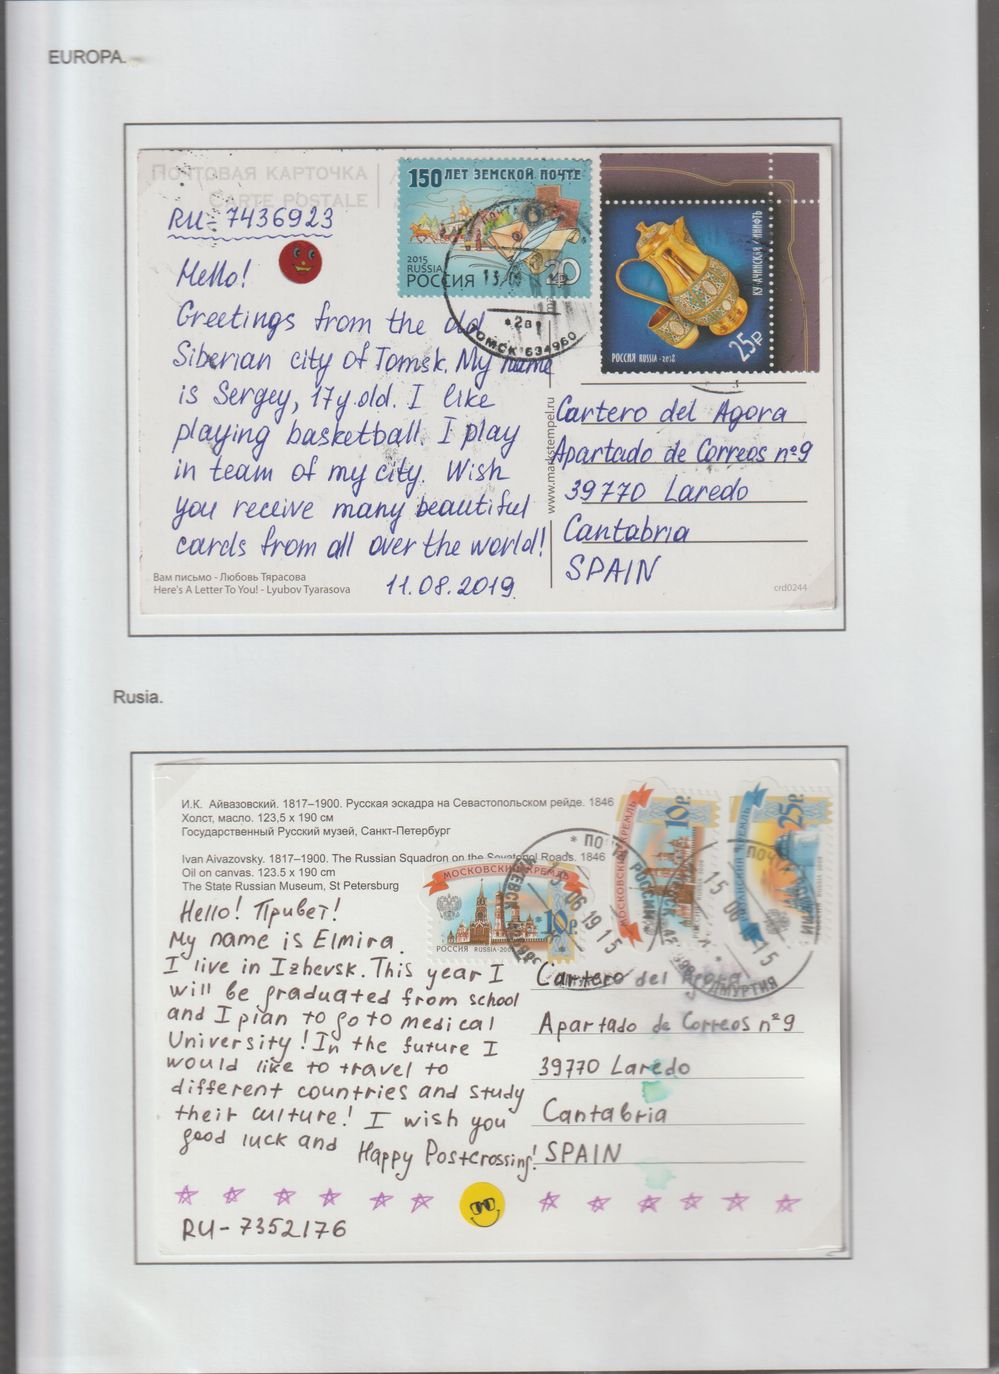 EUROPA.
ПОЧТОВАЯ КАРТОЧКА
CARTE POSTALE
RU-7436923
150 ЛЕТ ЗЕМСКОЙ ПОЧТЕ
2015
RUSSIA
РОССИЯ
20
13
*2в
ТОМСК 634960
25₽
РОССИЯ RUSSIA • 2018
Hello!
Greetings from the old
Siberian city of Tomsk. My name
is Sergey, 17 y.old. I like
playing basketball. I play
in team of my city. Wish
you receive many beautiful
cards from all over the world!
11.08.2019
www.markstempel.ru
Cartero del Agora
Apartado de Correos nº9
39770 Laredo
Cantabria
SPAIN
Вам письмо - Любовь Тярасова
Here's A Letter To You! - Lyubov Tyarasova
crd0244
Rusia.
И.К. Айвазовский. 1817–1900. Русская эскадра на Севастопольском рейде. 1846
Холст, масло. 123,5 x 190 см
Государственный Русский музей, Санкт-Петербург
Ivan Aivazovsky. 1817–1900. The Russian Squadron on the Sevatopol Roads. 1846
Oil on canvas. 123.5 x 190 cm
The State Russian Museum, St Petersburg
МОСКОВСКИЙ КРЕМЛЬ
10р.
РОССИЯ RUSSIA
МОСКОВСКИЙ КРЕМЛЬ
10р.
25р.
ПОЧТА РОССИИ
ИЖЕВСК
06 19 15
15 06
УДМУРТИЯ
Hello! Привет!
My name is Elmira.
I live in Izhevsk. This year I
will be graduated from school
and I plan to go to medical
University! In the future I
would like to travel to
different countries and study
their culture! I wish you
good luck and Happy Postcrossing!
Cartero del Agora
Apartado de Correos nº9
39770 Laredo
Cantabria
SPAIN
RU-7352176